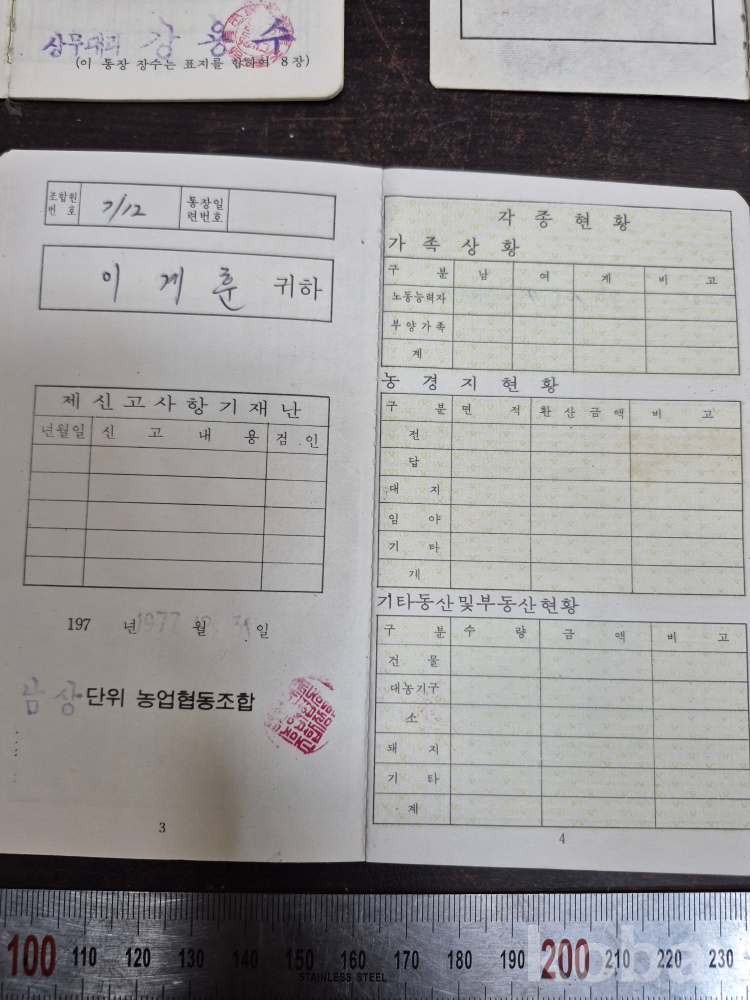 상무대리 강 용 수
(이 통장 장수는 표지를 합하여 8장)
조합원 번호 7/12 통장일련번호
이 계 훈 귀하
제신고사항기재난
년월일 신고내용 검인
197 년 월 일
1977
남상 단위 농업협동조합
3
각종현황
가족상황
구분 남 여 계 비고
노동능력자
부양가족
계
농경지현황
구분 면적 환산금액 비고
전
답
대지
임야
기타
계
기타동산및부동산현황
구분 수량 금액 비고
건물
대농기구
소
돼지
기타
계
4
100 110 120 130 140 150 160 170 180 190 200 210 220 230
STAINLESS STEEL